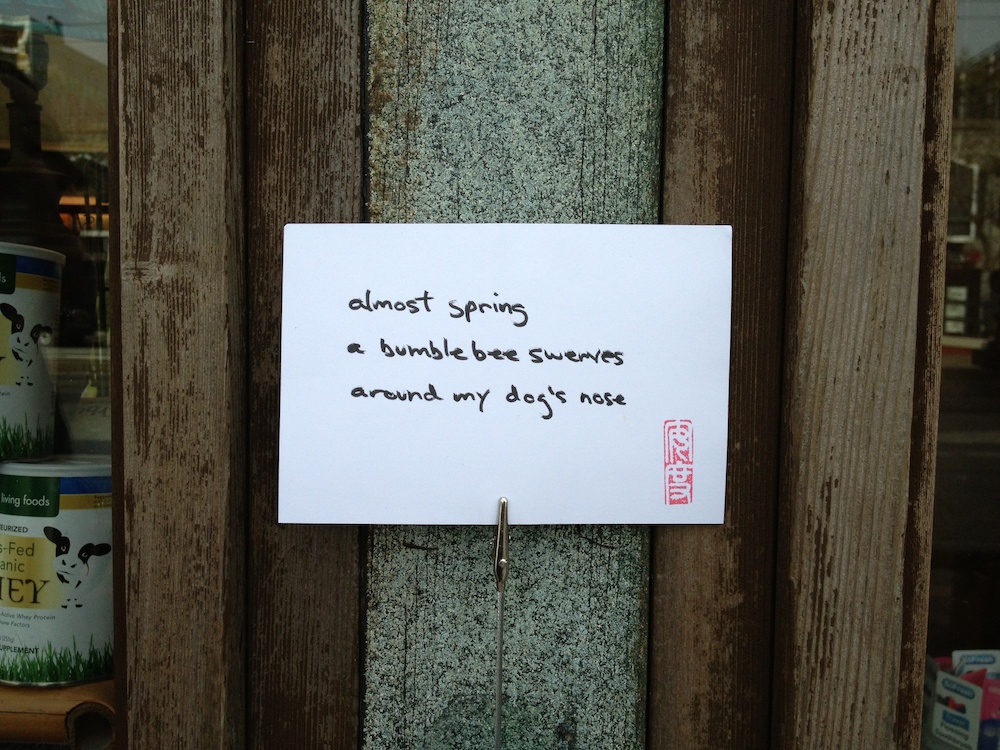 almost spring
a bumblebee swerves
around my dog's nose
living foods
EURIZED
s-Fed
anic
HEY
Active Whey Protein
UPPLEMENT